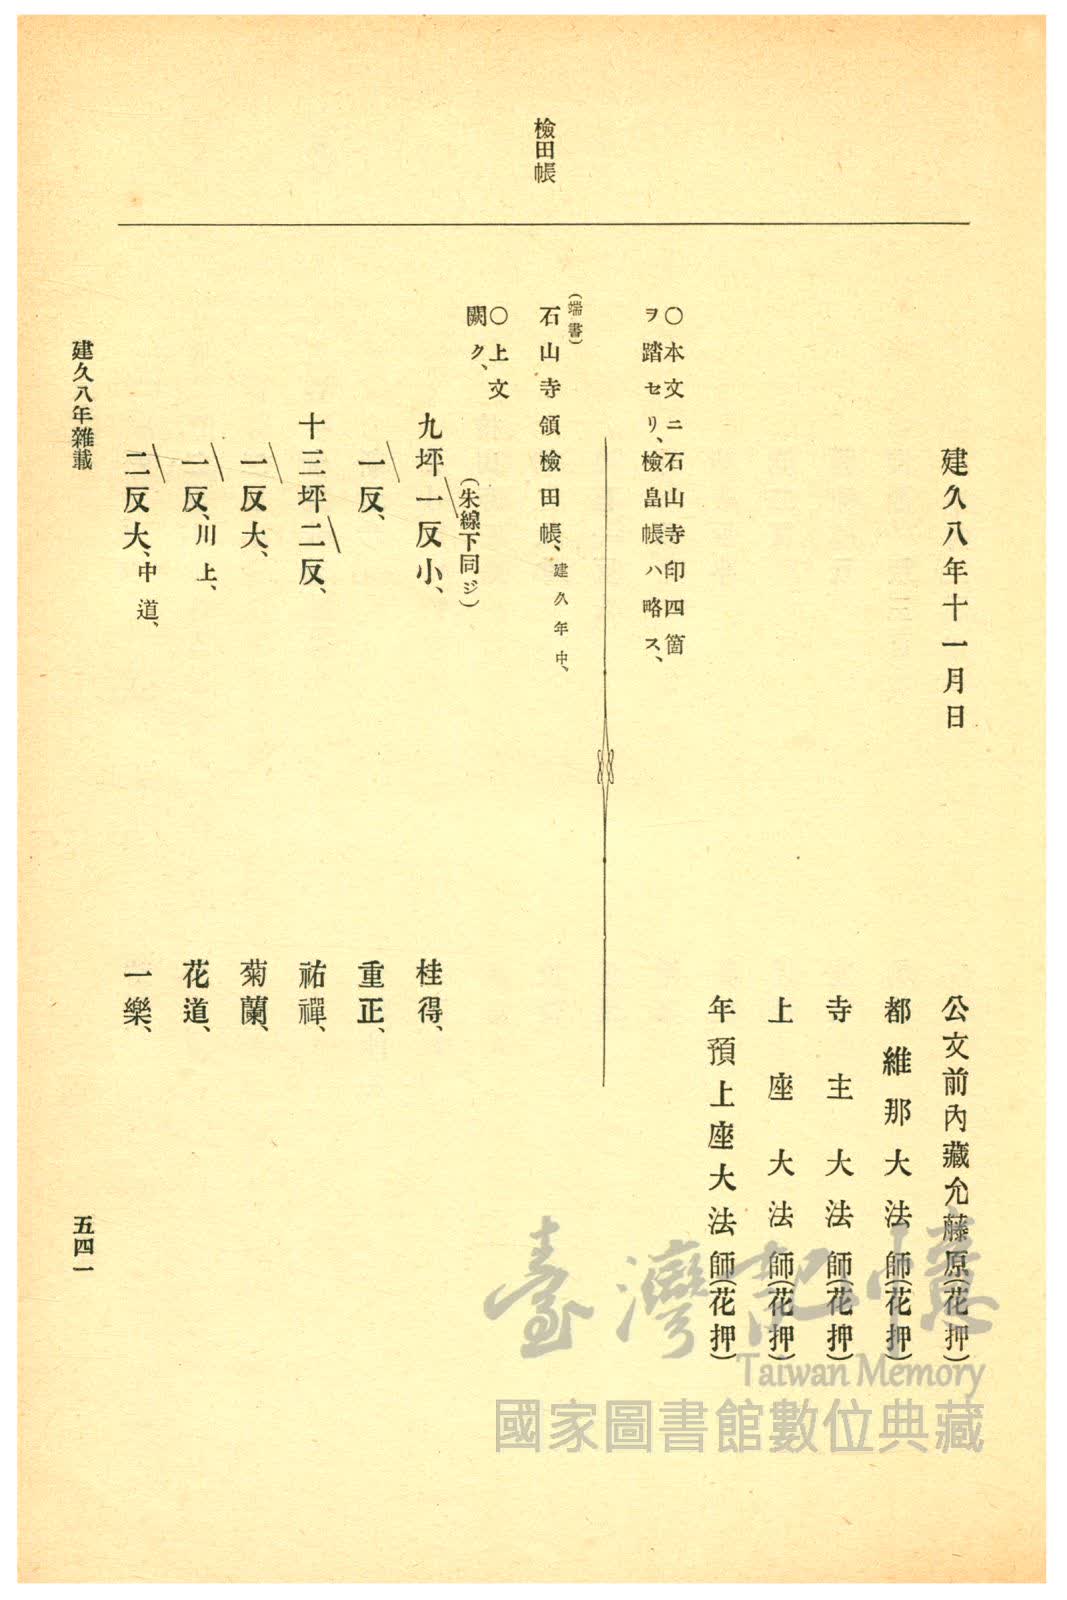 檢田帳
建久八年十一月日
公文前內藏允藤原(花押)
都維那大法師(花押)
寺主大法師(花押)
上座大法師(花押)
年預上座大法師(花押)
〇本文ニ石山寺印四箇
ヲ踏セリ、檢畠帳ハ略ス、
(端書)
石山寺領檢田帳、建久年中、
〇上文
闕ク、
(朱線下同ジ)
九坪一反小、 桂得、
一反、 重正、
十三坪二反、 祐禪、
一反大、 菊蘭、
一反、川上、 花道、
二反大、中道、 一樂、
建久八年雜載
五四一
臺灣記憶
Taiwan Memory
國家圖書館數位典藏